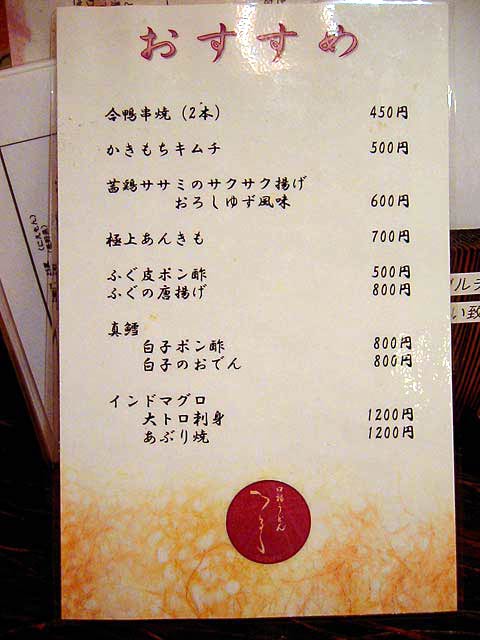 おすすめ
合鴨串焼（2本） 450円
かきもちキムチ 500円
茜鶏ササミのサクサク揚げ
おろしゆず風味 600円
極上あんきも 700円
ふぐ皮ポン酢 500円
ふぐの唐揚げ 800円
真鱈
白子ポン酢 800円
白子のおでん 800円
インドマグロ
大トロ刺身 1200円
あぶり焼 1200円